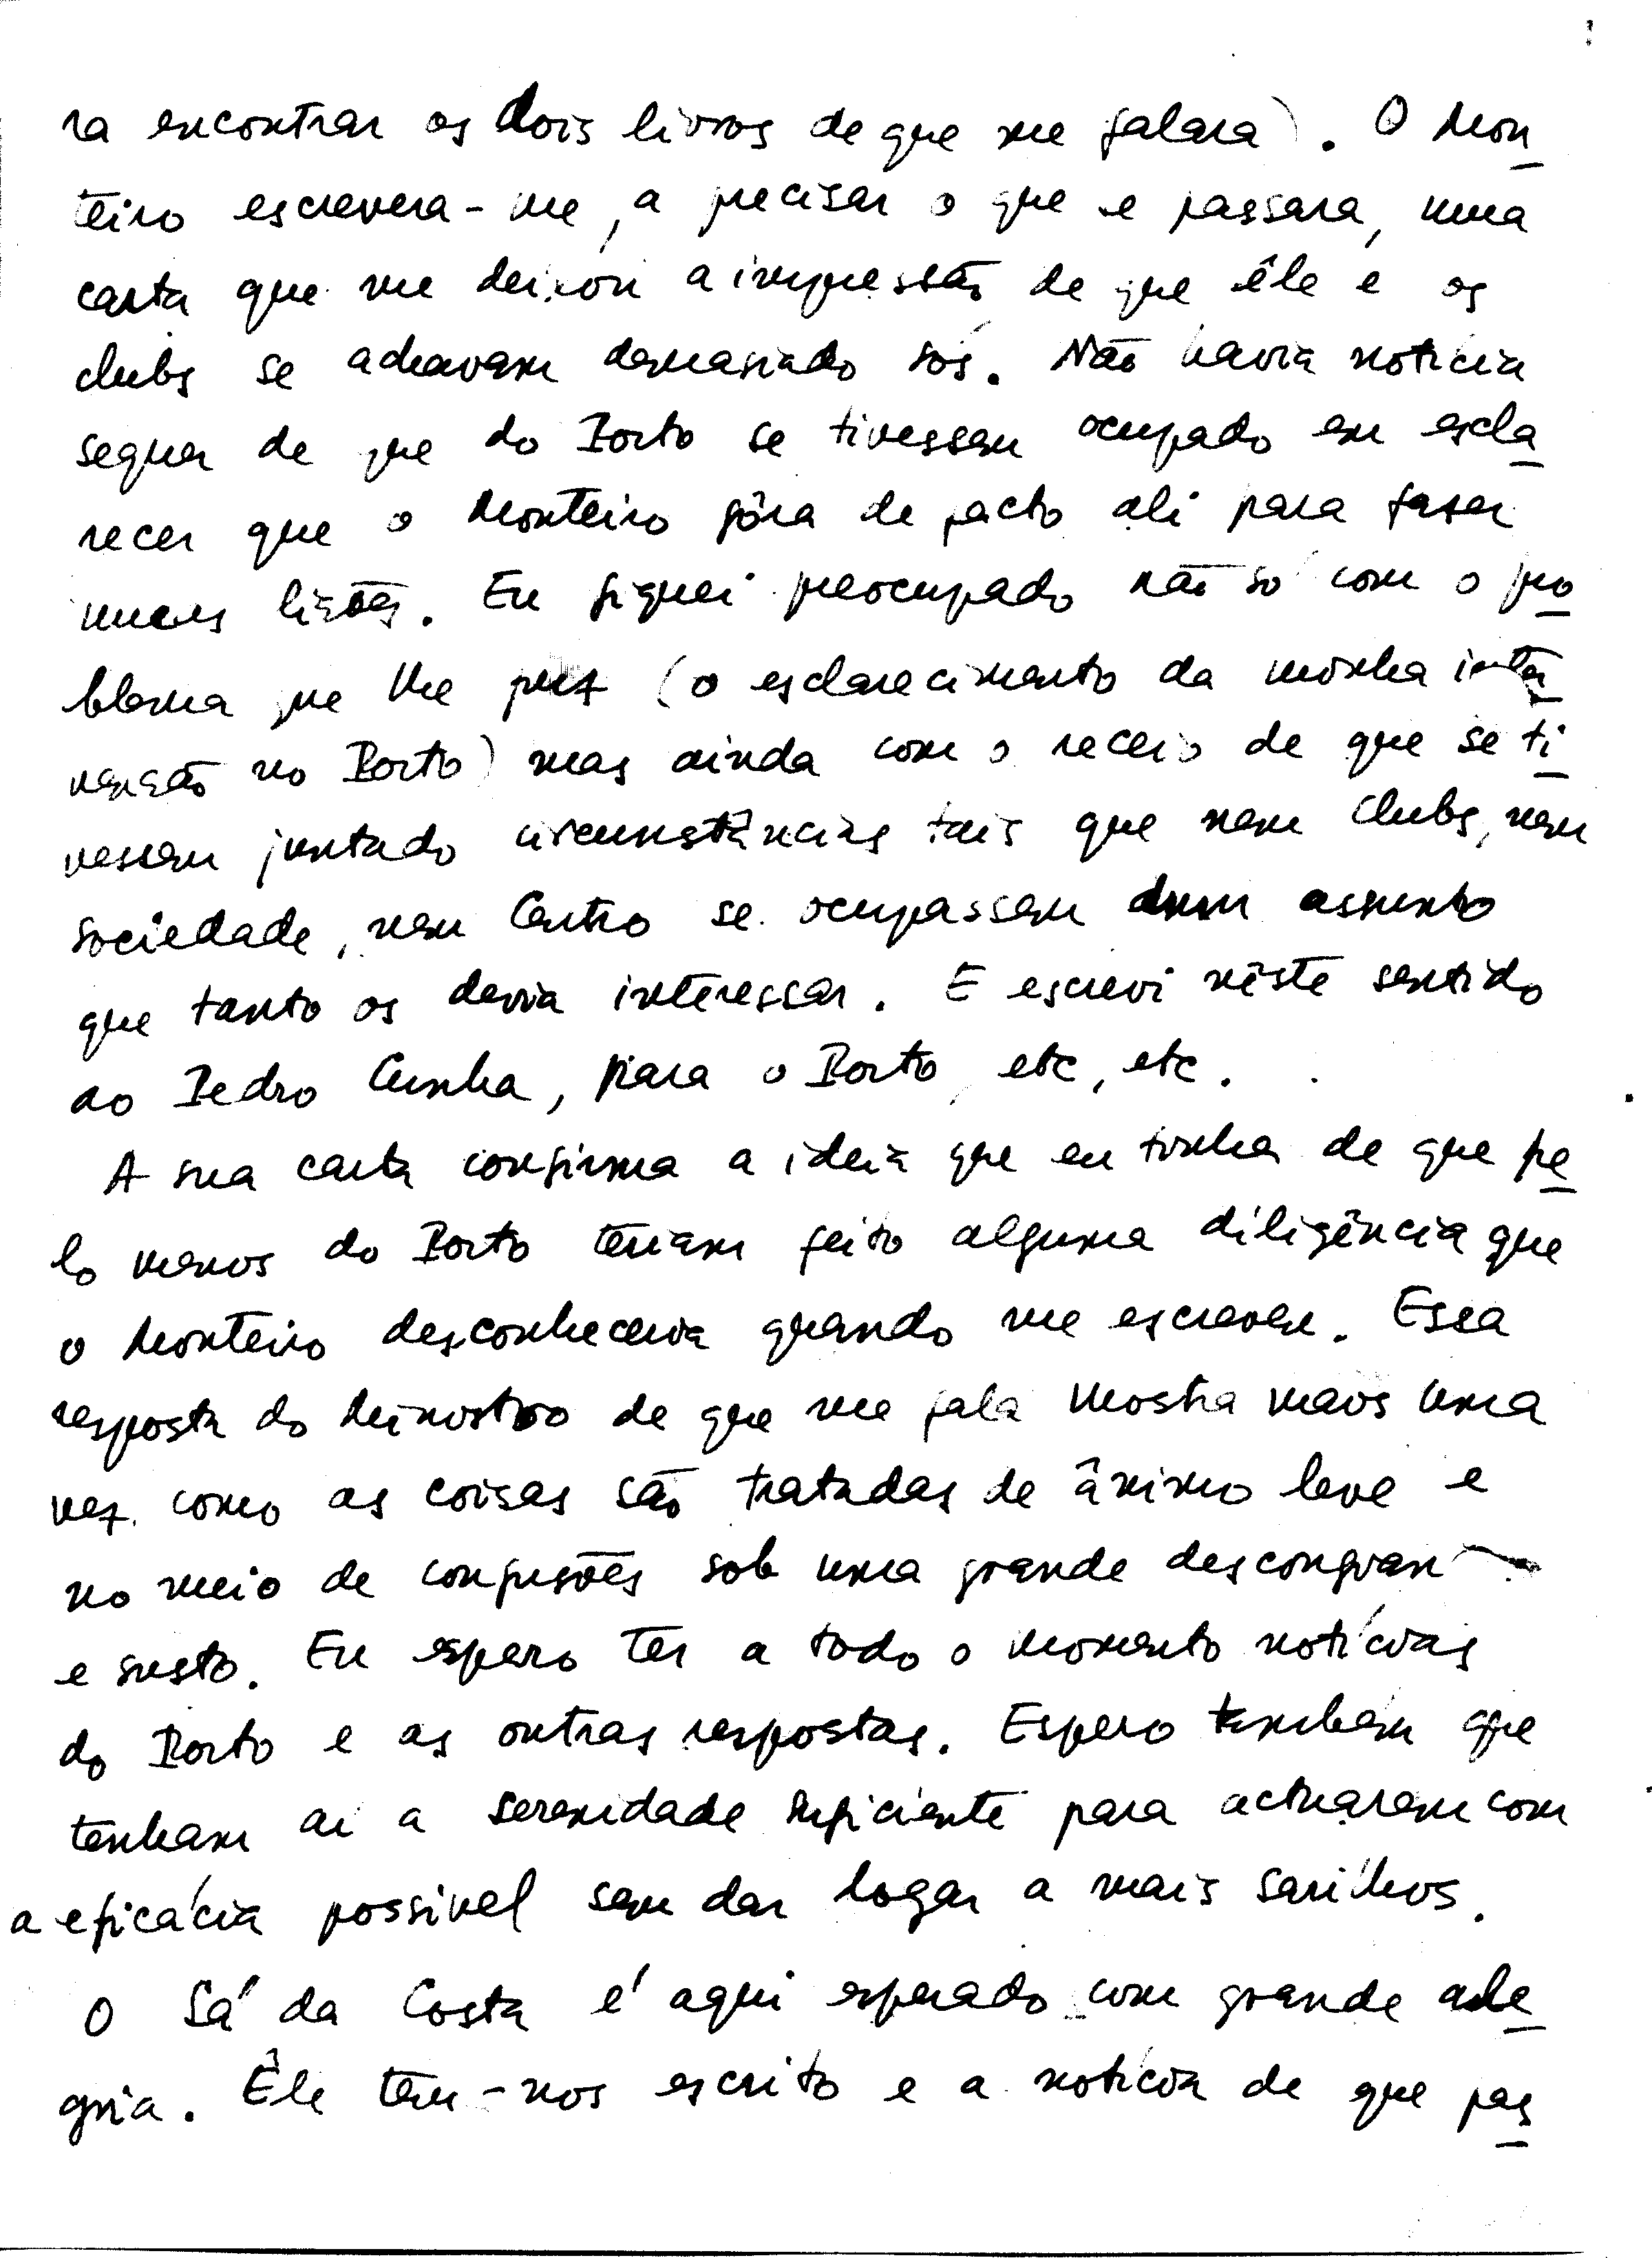 ra encontrar os dois livros de que me falara). O Mon
teiro escrevera-me, a precisar o que se passara, uma
carta que me deixou a impressão de que êle e os
clubs se achavam demasiado sós. Não havia notícia
sequer de que do Porto se tivessem ocupado em escla
recer que o Monteiro fôra de facto ali para fazer
umas lições. Eu fiquei preocupado não só com o pro
blema que lhe puz (o esclarecimento da minha inter
venção no Porto) mas ainda com o receio de que se ti
vessem juntado circunstâncias tais que nem Clubs, nem
sociedade, nem Centro se ocupassem dum assunto
que tanto os devia interessar. E escrevi nêste sentido
ao Pedro Cunha, para o Porto, etc, etc.
A sua carta confirma a ideia que eu tinha de que pe
lo menos do Porto teriam feito alguma diligência que
o Monteiro desconhecia quando me escreveu. Essa
resposta do Ministro de que me fala mostra mais uma
vez como as coisas são tratadas de ânimo leve e
no meio de confusões sob uma grande desconfian
e susto. Eu espero ter a todo o momento notícias
do Porto e as outras respostas. Espero também que
tenham aí a serenidade suficiente para actuarem com
a eficácia possivel sem dar logar a mais sarilhos.
O Sá da Costa é aqui esperado com grande ale
gria. Êle tem-nos escrito e a notícia de que pas